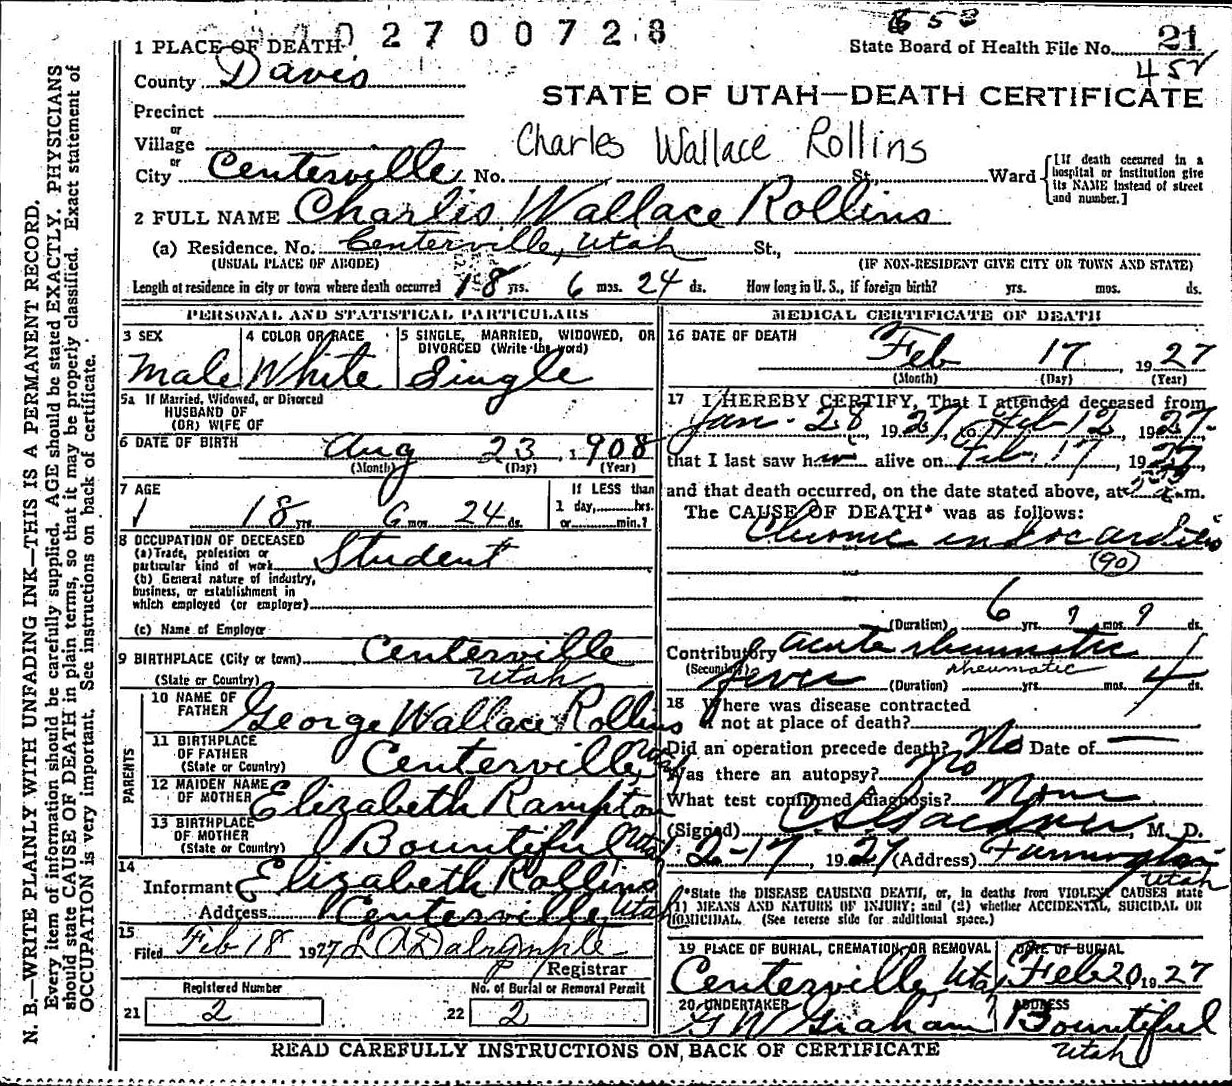 2700728
653
1 PLACE OF DEATH
State Board of Health File No. 21
County Davis
452
STATE OF UTAH—DEATH CERTIFICATE
Precinct
or
Village
Charles Wallace Rollins
or
City Centerville No. St. Ward [If death occurred in a hospital or institution give its NAME instead of street and number.]
2 FULL NAME Charlis Wallace Rollins
(a) Residence. No. Centerville, Utah St.,
(USUAL PLACE OF ABODE) (IF NON-RESIDENT GIVE CITY OR TOWN AND STATE)
Length of residence in city or town where death occurred 18 yrs. 6 mos. 24 ds. How long in U. S., if foreign birth? yrs. mos. ds.
PERSONAL AND STATISTICAL PARTICULARS
3 SEX 4 COLOR OR RACE 5 SINGLE, MARRIED, WIDOWED, OR
DIVORCED (Write the word)
Male White Single
5a If Married, Widowed, or Divorced
HUSBAND OF
(OR) WIFE OF
6 DATE OF BIRTH Aug 23, 1908
(Month) (Day) (Year)
7 AGE If LESS than
1 day, hrs.
18 yrs 6 mos 24 ds. or min.?
8 OCCUPATION OF DECEASED
(a) Trade, profession or
particular kind of work Student
(b) General nature of industry,
business, or establishment in
which employed (or employer)
(c) Name of Employer
9 BIRTHPLACE (City or town) Centerville
(State or Country) Utah
PARENTS
10 NAME OF
FATHER George Wallace Rollins
11 BIRTHPLACE
OF FATHER
(State or Country) Centerville Utah
12 MAIDEN NAME
OF MOTHER Elizabeth Rampton
13 BIRTHPLACE
OF MOTHER
(State or Country) Bountiful Utah
14
Informant Elizabeth Rollins
Address Centerville Utah
15
Filed Feb 18 1927 L A Dalrymple
Registrar
Registered Number No. of Burial or Removal Permit
21 2 22 2
MEDICAL CERTIFICATE OF DEATH
16 DATE OF DEATH
Feb 17, 1927
(Month) (Day) (Year)
17 I HEREBY CERTIFY, That I attended deceased from
Jan. 28 1927, to Feb 12, 1927.
that I last saw him alive on Feb. 17, 1927,
and that death occurred, on the date stated above, at m.
The CAUSE OF DEATH* was as follows:
Chronic endocarditis
(90)
6 ? ?
(Duration) yrs. mos. ds.
Contributory acute rheumatic
(Secondary) fever rheumatic
(Duration) yrs. mos. 4 ds.
18 Where was disease contracted
if not at place of death?
Did an operation precede death? No Date of —
Was there an autopsy? No
What test confirmed diagnosis? None
(Signed) M. D.
2-17, 1927 (Address) Farmington
Utah
*State the DISEASE CAUSING DEATH, or, in deaths from VIOLENT CAUSES state
(1) MEANS AND NATURE OF INJURY; and (2) whether ACCIDENTAL, SUICIDAL OR
HOMICIDAL. (See reverse side for additional space.)
19 PLACE OF BURIAL, CREMATION, OR REMOVAL DATE OF BURIAL
Centerville, Utah Feb 20, 1927
20 UNDERTAKER ADDRESS
G W Graham Bountiful
Utah
READ CAREFULLY INSTRUCTIONS ON BACK OF CERTIFICATE
N. B.—WRITE PLAINLY WITH UNFADING INK—THIS IS A PERMANENT RECORD.
Every item of information should be carefully supplied. AGE should be stated EXACTLY. PHYSICIANS
should state CAUSE OF DEATH in plain terms, so that it may be properly classified. Exact statement of
OCCUPATION is very important. See instructions on back of certificate.